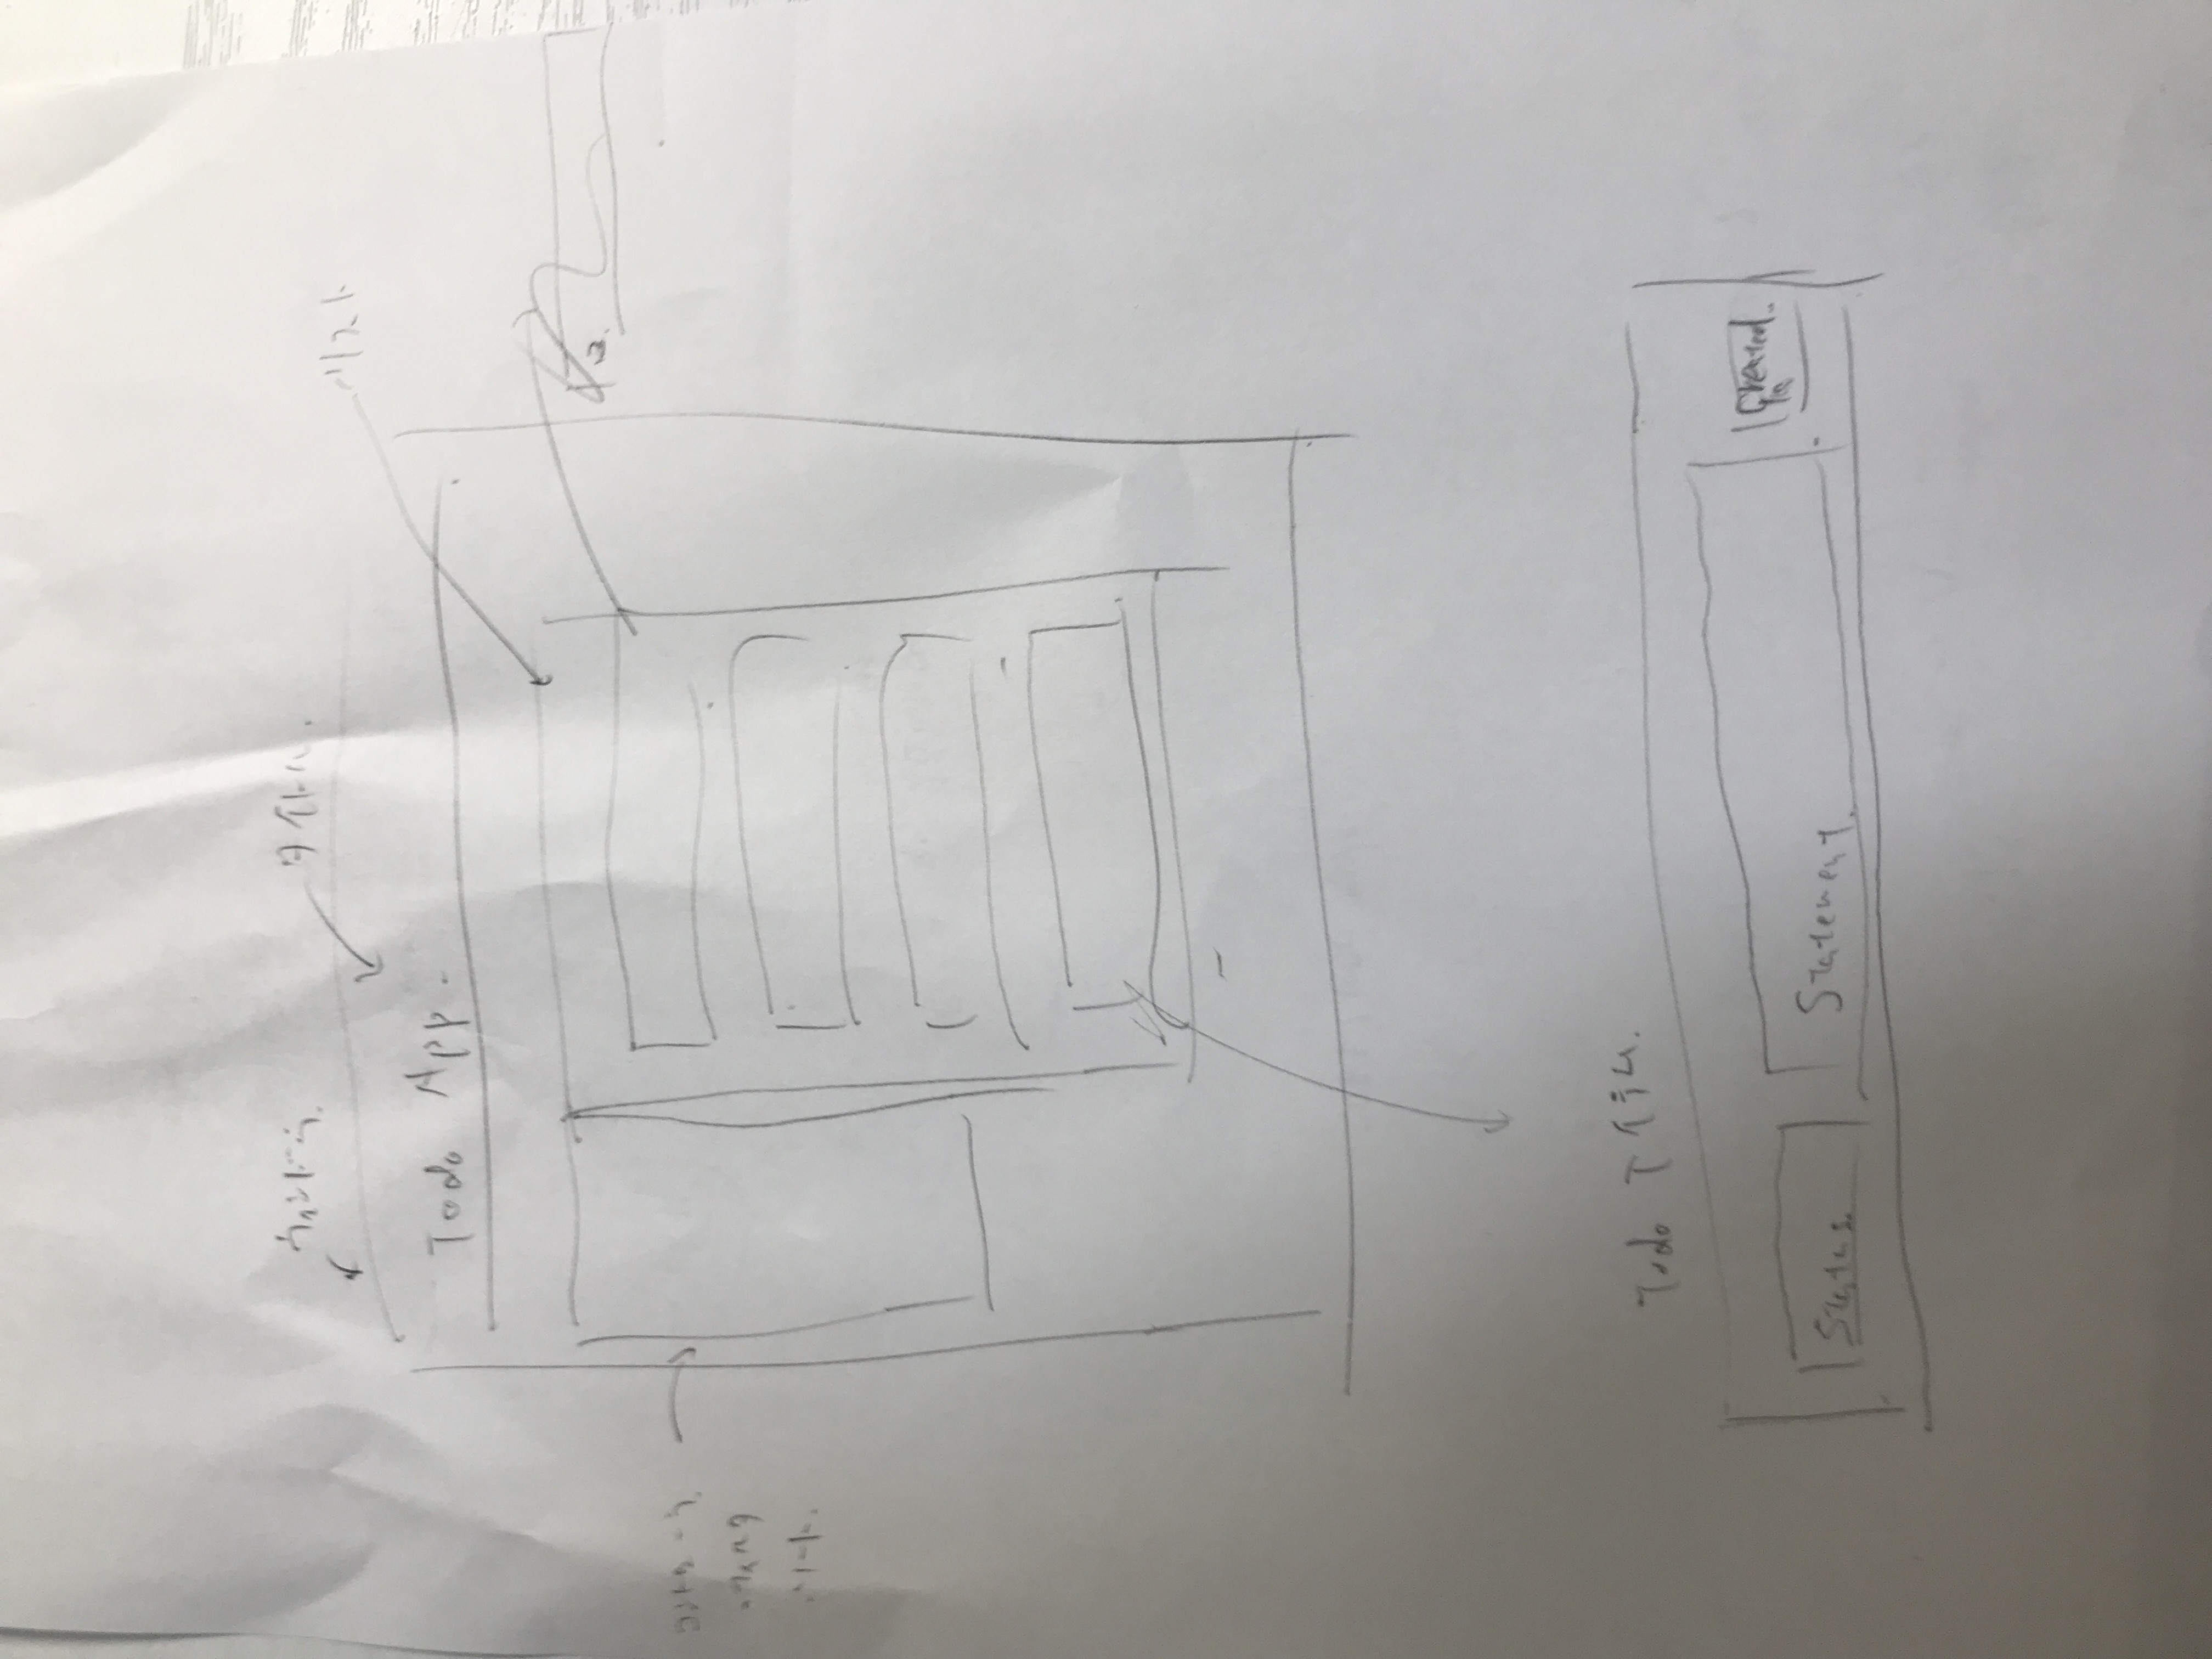 ウィンドウ.
タイトル.
リスト
Todo App.
・ソート.
Todo アイテム.
Status.
Statement.
Created